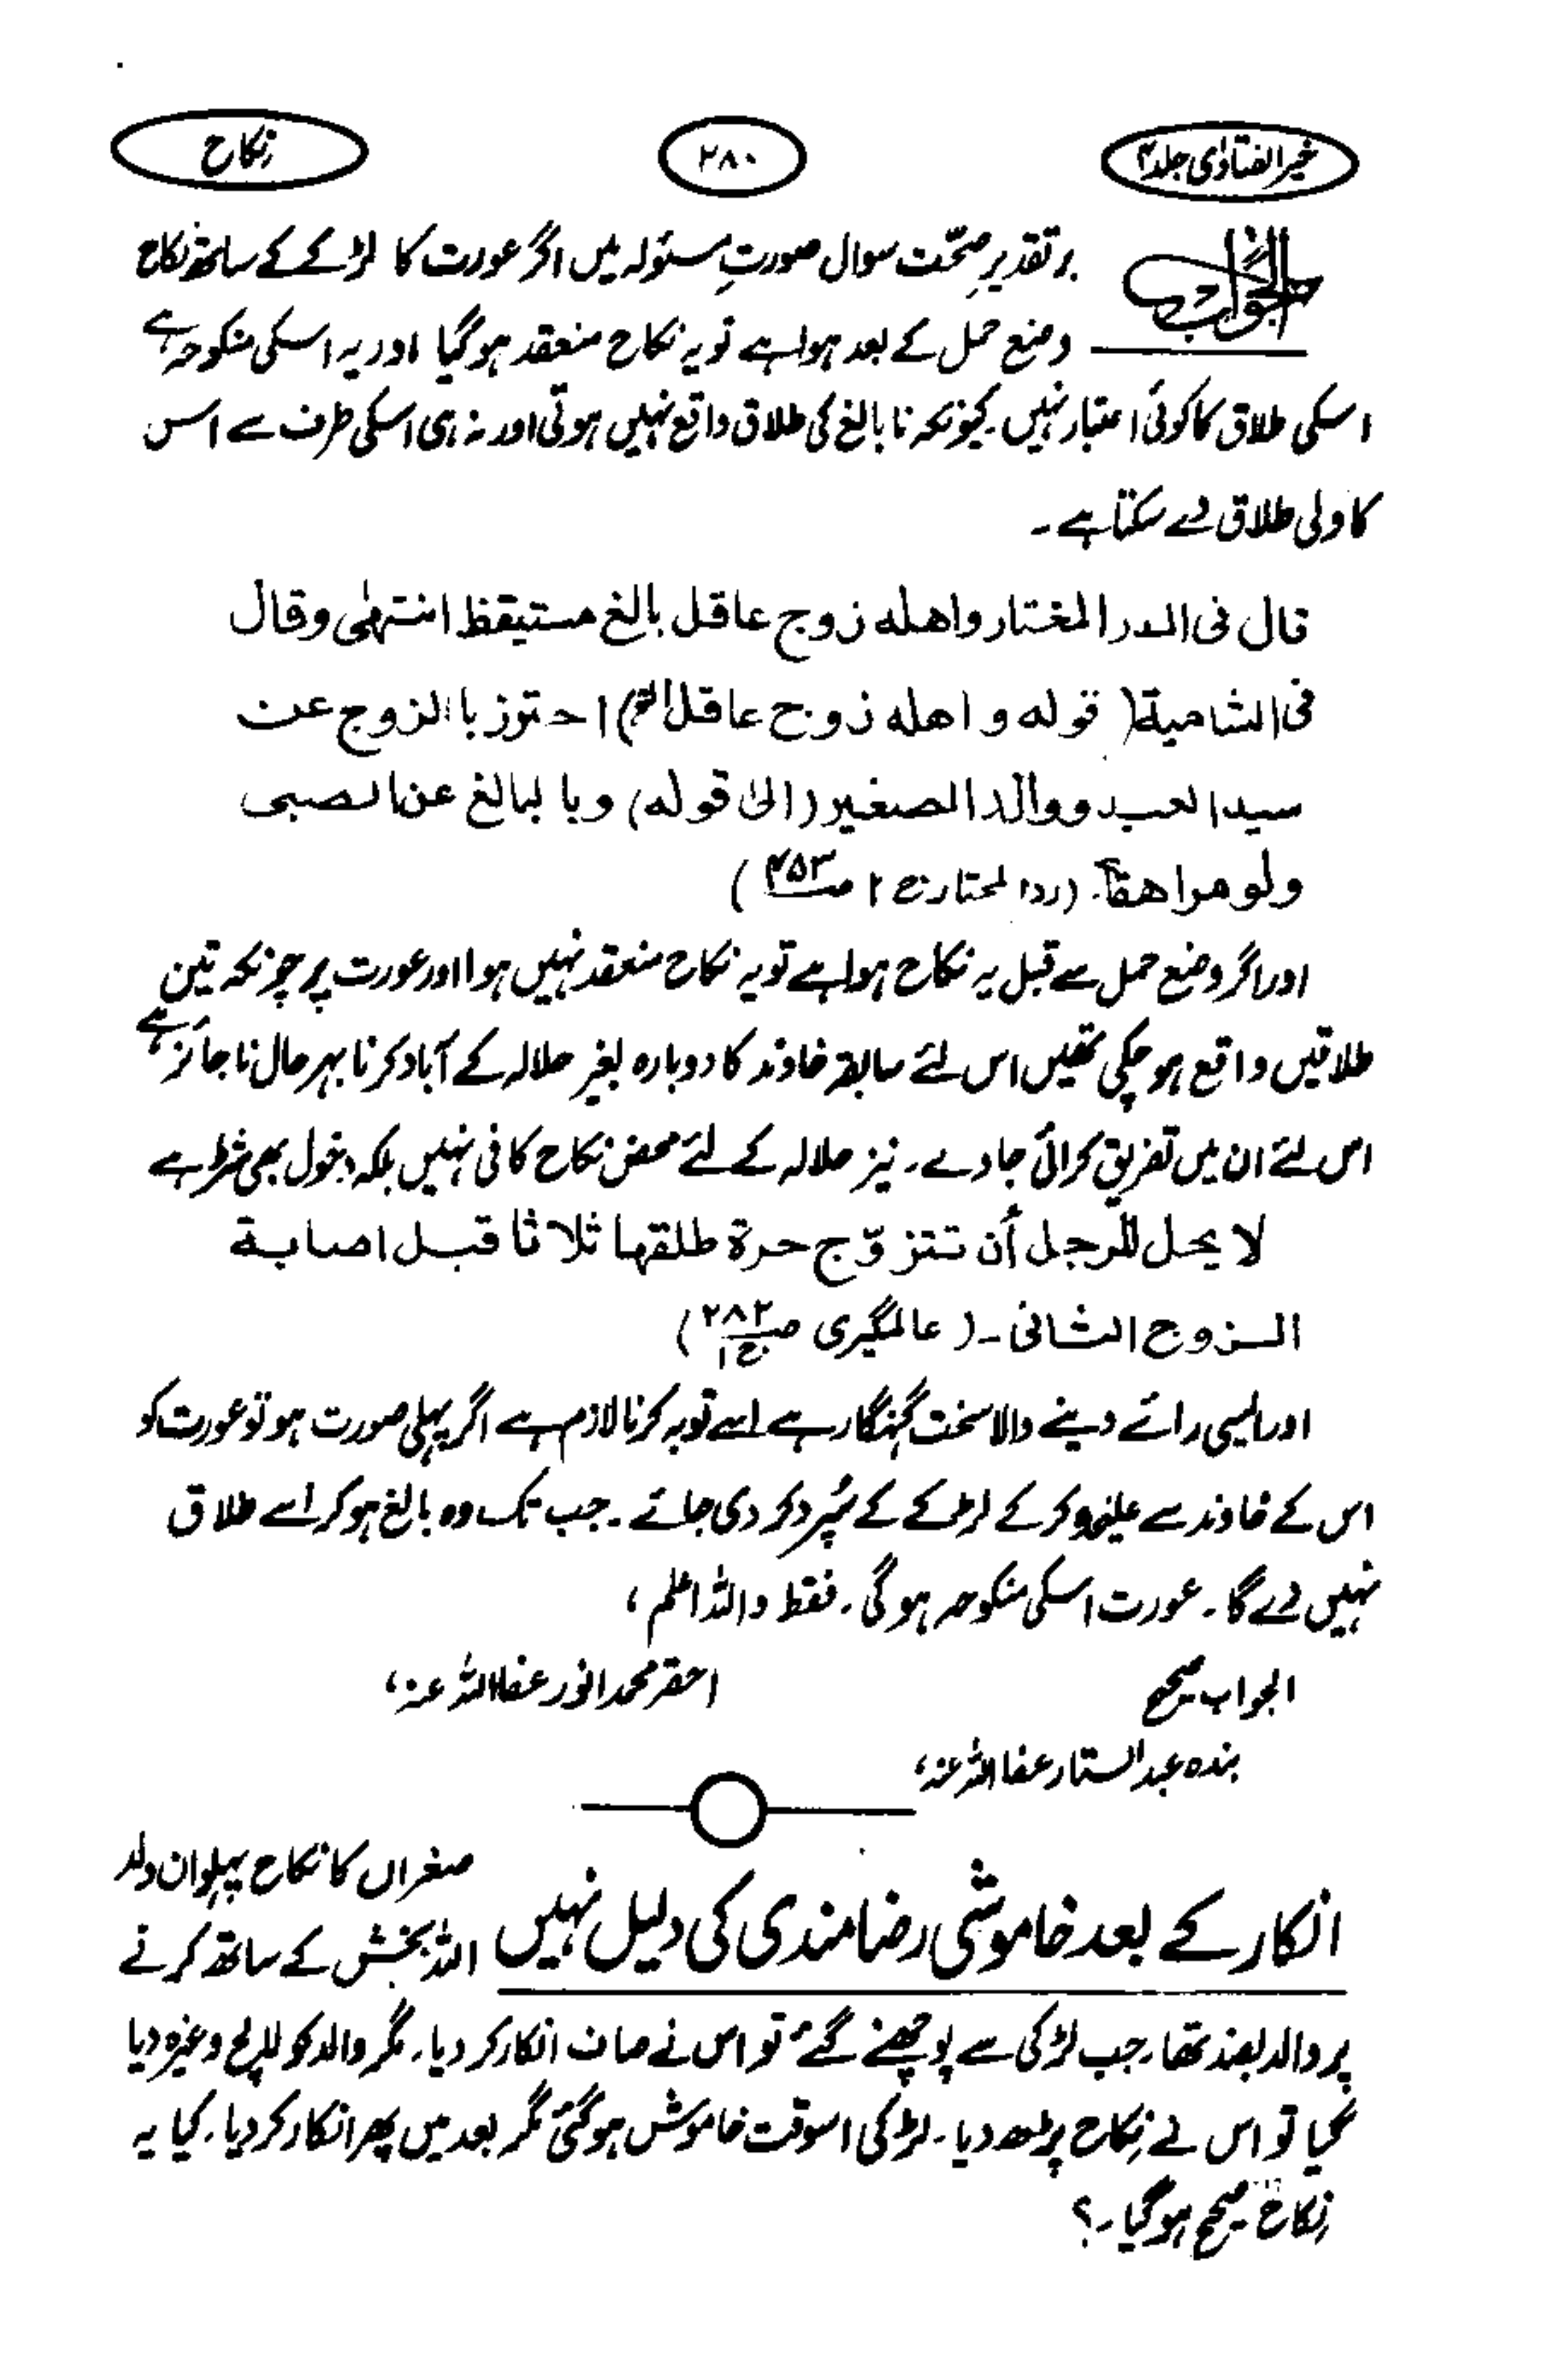 خیر الفتاوٰی جلد ۴
۲۸۰
نکاح
الجواب
برتقدیرِ صحّت سوال صورتِ مسئولہ میں اگر عورت کا لڑکے کے ساتھ نکاح
وضع حمل کے بعد ہوا ہے تو یہ نکاح منعقد ہوگیا اور یہ اسکی منکوحہ ہے
اسکی طلاق کا کوئی اعتبار نہیں۔ کیونکہ نابالغ کی طلاق واقع نہیں ہوتی اور نہ ہی اسکی طرف سے اس
کا ولی طلاق دے سکتا ہے۔
قال فی الدر المختار واهله زوج عاقل بالغ مستیقظ انتهٰی وقال
فی الشامیة (قوله واهله زوج عاقل الخ) احترز بالزوج عن
سید العبد ووالد الصغیر (الیٰ قوله) وبالبالغ عن الصبی
ولو مراهقاً۔ (ردالمحتار ج ۲ ص۴۵۳)
اور اگر وضع حمل سے قبل یہ نکاح ہوا ہے تو یہ نکاح منعقد نہیں ہوا اور عورت پر چونکہ تین
طلاقیں واقع ہو چکی تھیں اس لئے سابقہ خاوند کا دوبارہ بغیر حلالہ کے آباد کرنا بہرحال ناجائز ہے
اس لئے ان میں تفریق کرائی جاوے۔ نیز حلالہ کے لئے محض نکاح کافی نہیں بلکہ دخول بھی شرط ہے
لا یحل للرجل أن تتزوّج حرة طلقها ثلاثا قبل اصابة
الزوج الثانی۔ (عالمگیری ص۲۸۲ ج۱)
اور ایسی رائے دینے والا سخت گنہگار ہے اسے توبہ کرنا لازم ہے اگر پہلی صورت ہو تو عورت کو
اس کے خاوند سے علیٰحدہ کر کے لڑکے کے سُپرد کر دی جائے۔ جب تک وہ بالغ ہوکر اسے طلاق
نہیں دے گا۔ عورت اسکی منکوحہ ہوگی۔ فقط واللہ اعلم،
الجواب صحیح
احقر محمد انور عفا اللہ عنہ،
بندہ عبد الستار عفا اللہ عنہ،
انکار کے بعد خاموشی رضامندی کی دلیل نہیں
صغراں کا نکاح پہلوان ولد
اللہ بخش کے ساتھ کرنے
پر والد بضد تھا۔ جب لڑکی سے پوچھنے گئے تو اس نے صاف انکار کر دیا۔ مگر والد کو لالچ وغیرہ دیا
گیا تو اس نے نکاح پڑھ دیا۔ لڑکی اسوقت خاموش ہوگئی مگر بعد میں پھر انکار کر دیا۔ کیا یہ
نکاح صحیح ہوگیا۔؟